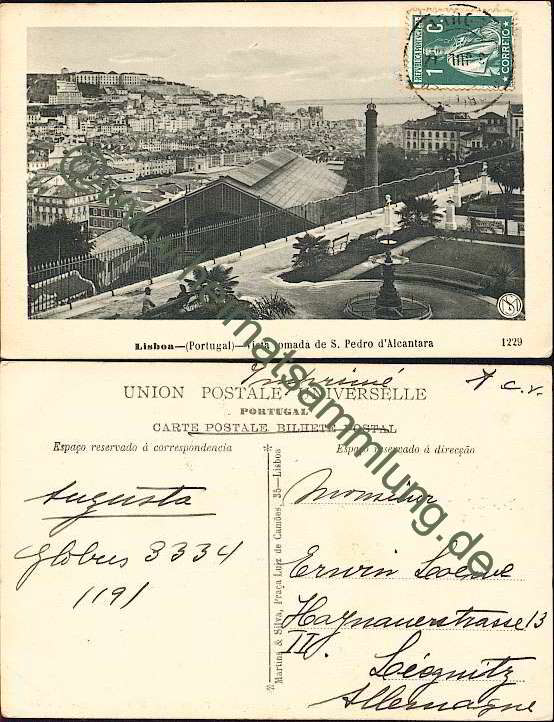 1 C.
REPUBLICA PORTUGUESA
CORREIO
Lisboa—(Portugal)—Vista tomada de S. Pedro d'Alcantara
1229
Imprimé
UNION POSTALE UNIVERSELLE
PORTUGAL
CARTE POSTALE BILHETE POSTAL
Espaço reservado á correspondencia
Espaço reservado á direcção
Augusta
Globus 3334
1191
Martins & Silva, Praça Luiz de Camões, 35—Lisboa
Monsieur
Erwin Loewe
Haynauerstrasse 13
II
Liegnitz
Allemagne
heimatsammlung.de